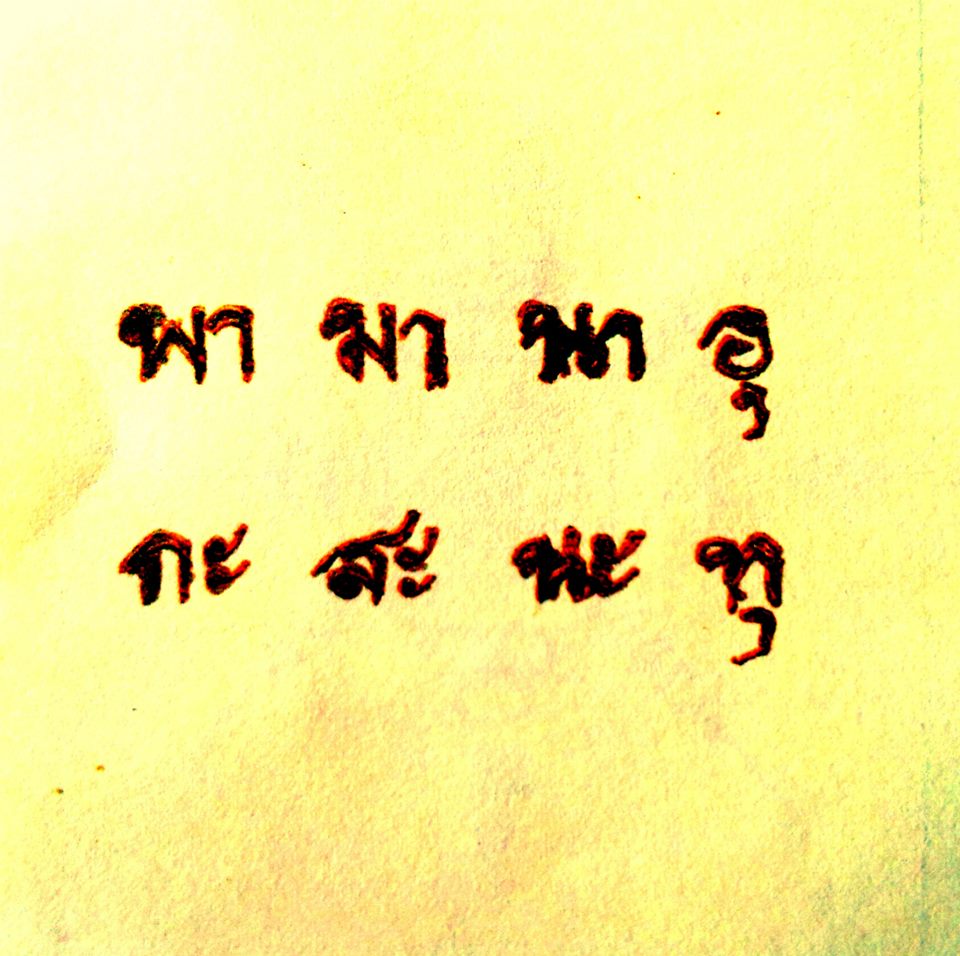 พา มา นา อุ
กะ สะ นะ ทุ